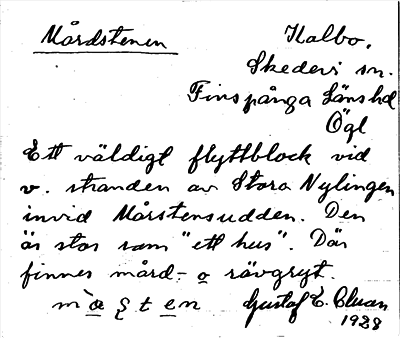 Mårdstenen
Kalbo.
Skedevi sn.
Finspånga Länshd
Ögl
Ett väldigt flyttblock vid
v. stranden av Stora Nylingen
invid Mårstensudden. Den
är stor som "ett hus". Där
finnes mård- o rävgryt.
Gustaf E.
1928